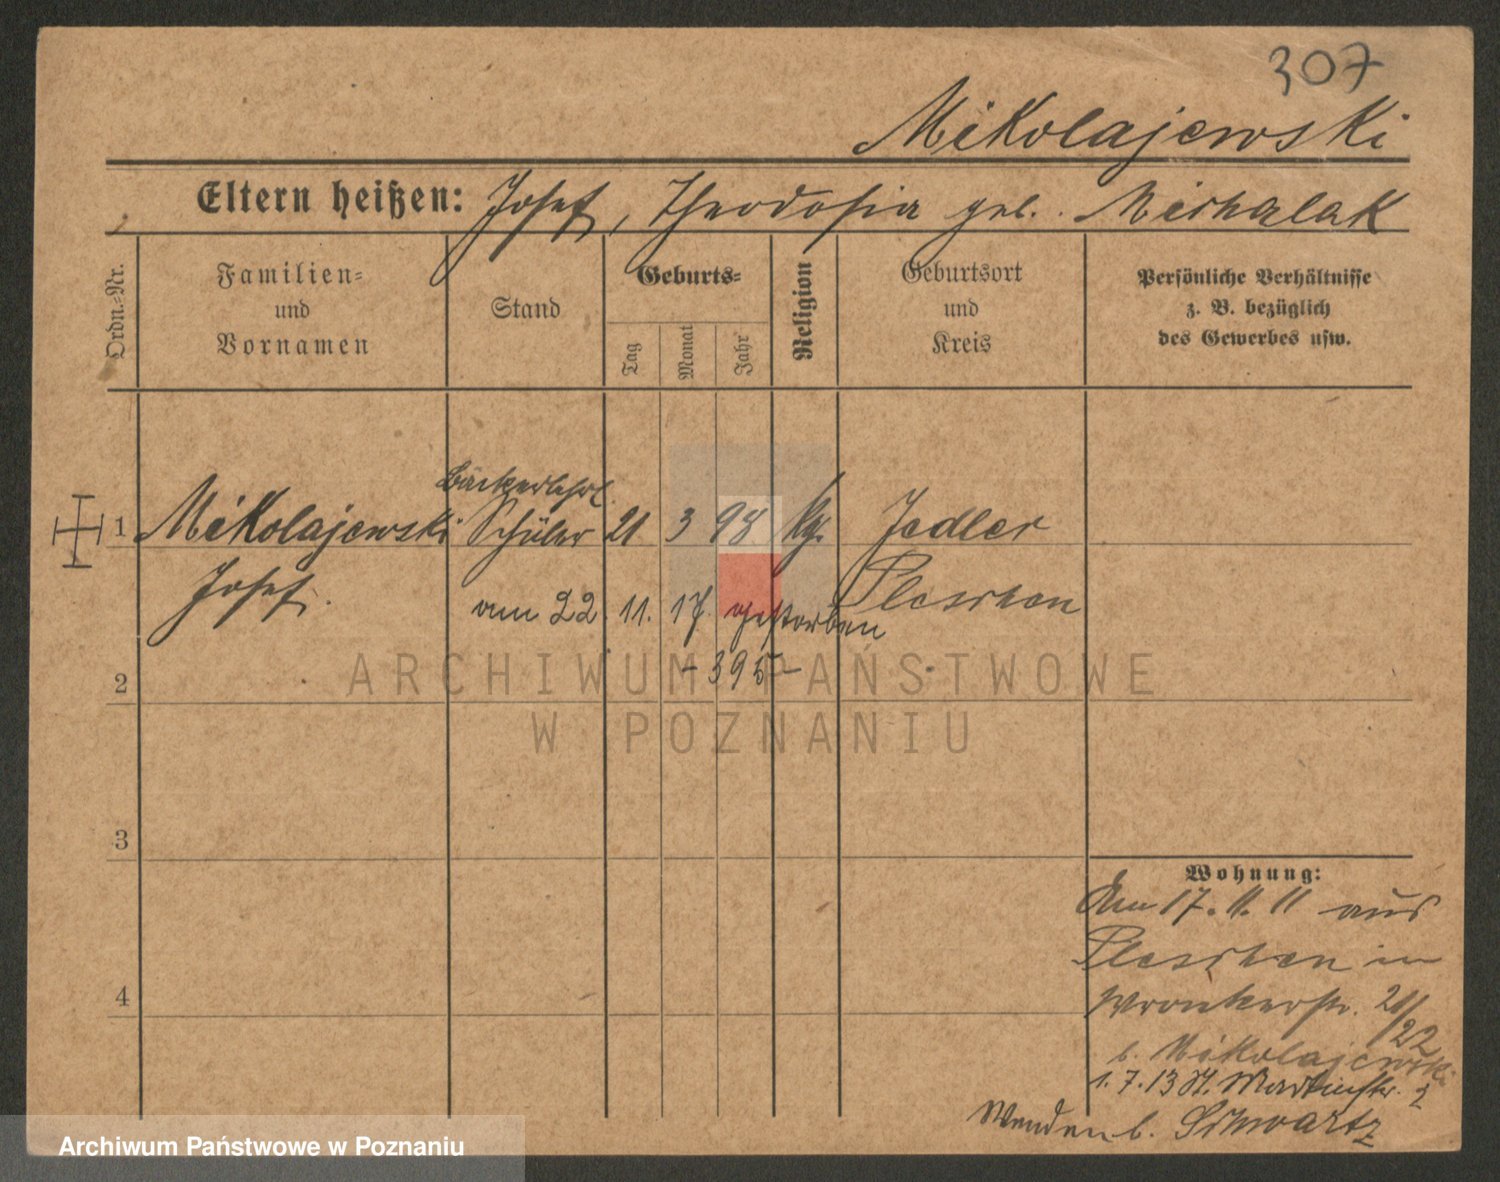 307
Mikolajewski
Eltern heißen: Josef, Theodosia geb. Michalak
Ordn.-Nr.
Familien-
und
Vornamen
Stand
Geburts-
Tag
Monat
Jahr
Religion
Geburtsort
und
Kreis
Persönliche Verhältnisse
z. B. bezüglich
des Gewerbes usw.
Bäckerlehrl.
1 Mikolajewski Schüler 21 3 98 kg. Jedlec
Josef. Pleschen
am 22. 11. 17. gestorben
- 395 -
2
3
4
Wohnung:
Am 17. 11. 11 aus
Pleschen in
Wronkerstr. 21/22
b. Mikolajewski
1. 7. 13 St. Martinstr. 2
Wenden b. Schwartz
ARCHIWUM PAŃSTWOWE
W POZNANIU
Archiwum Państwowe w Poznaniu